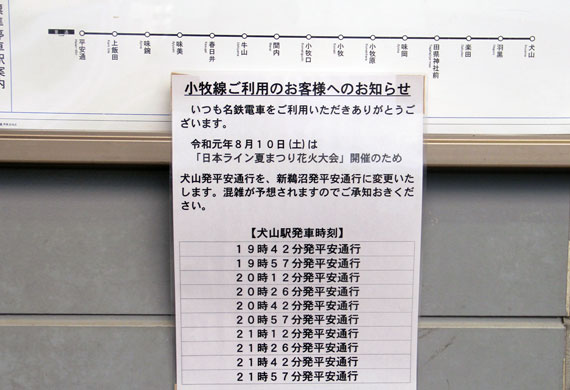 票集停車駅案内
普通
平安通
上飯田
味鋺
味美
春日井
牛山
間内
小牧口
小牧
小牧原
味岡
田県神社前
楽田
羽黒
犬山
小牧線ご利用のお客様へのお知らせ
いつも名鉄電車をご利用いただきありがとうご
ざいます。
令和元年８月１０日(土)は
「日本ライン夏まつり花火大会」開催のため
犬山発平安通行を、新鵜沼発平安通行に変更いた
します。混雑が予想されますのでご承知おきくだ
さい。
【犬山駅発車時刻】
１９時４２分発平安通行
１９時５７分発平安通行
２０時１２分発平安通行
２０時２６分発平安通行
２０時４２分発平安通行
２０時５７分発平安通行
２１時１２分発平安通行
２１時２６分発平安通行
２１時４２分発平安通行
２１時５７分発平安通行